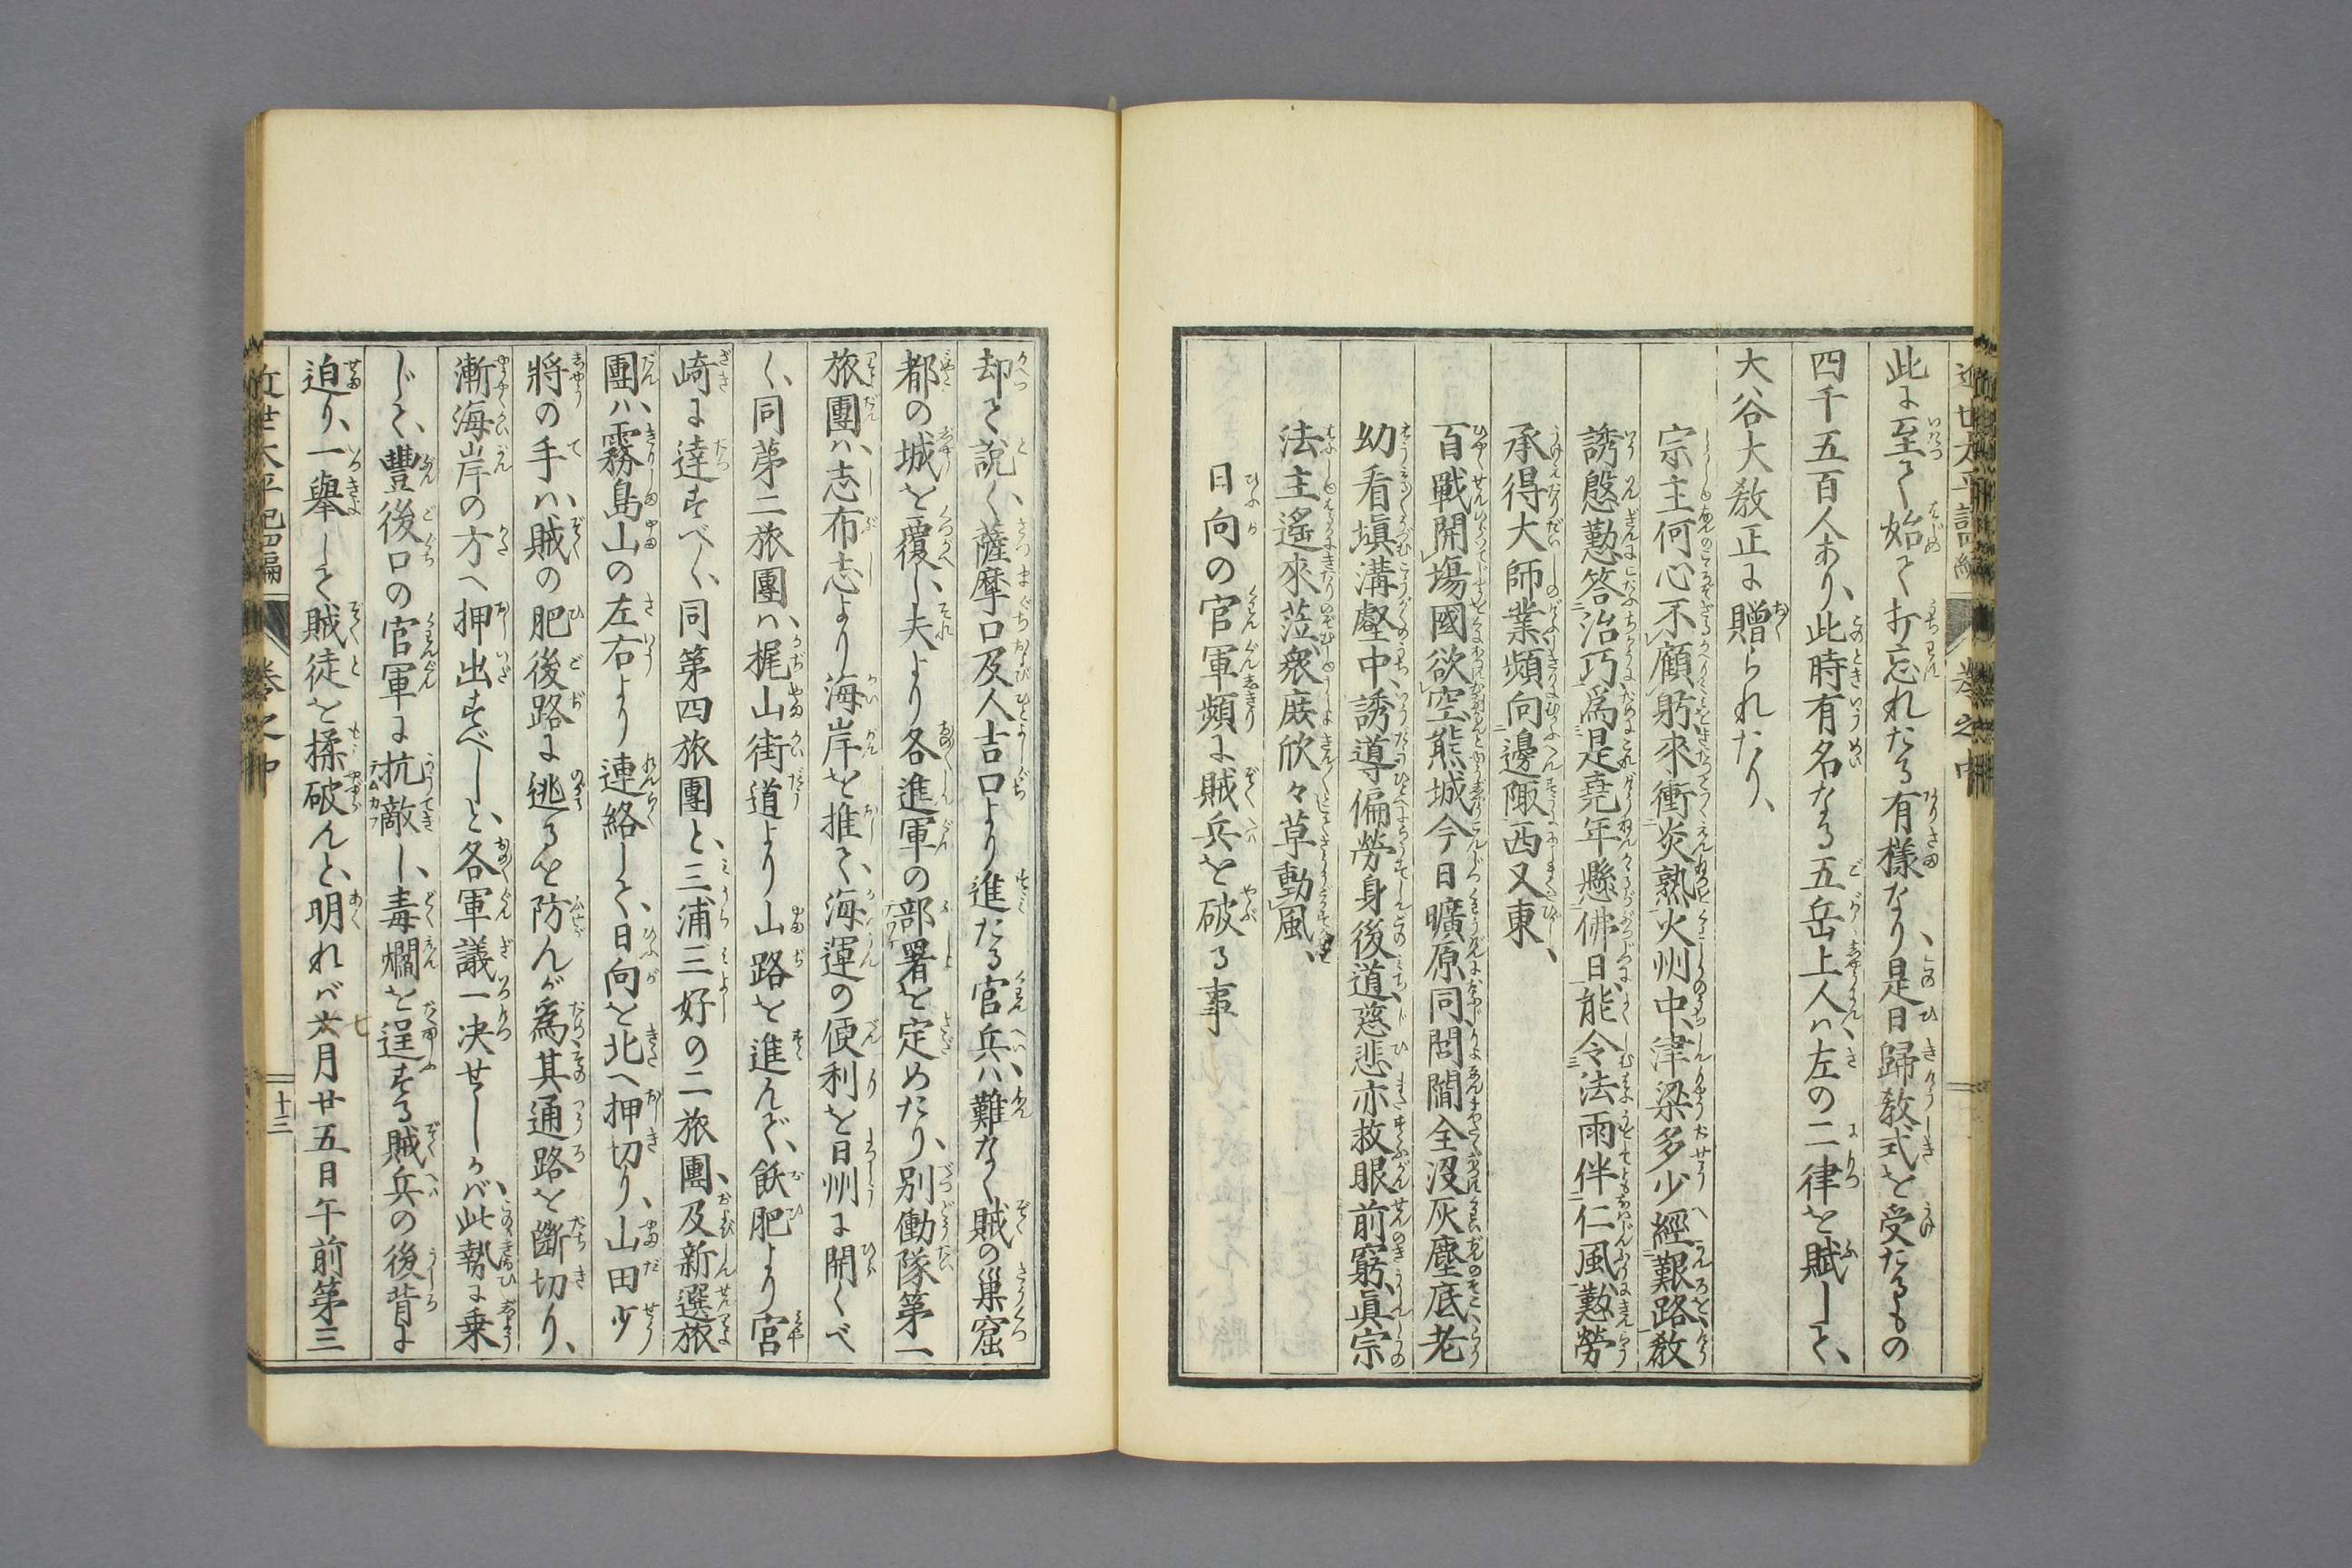 此に至て始て打忘れたる有樣なり、是日歸敎式を受たるもの
四千五百人あり、此時有名なる五岳上人ハ、左の二律を賦して、
大谷大敎正に贈られたり、
宗主何心不顧躬、來衝炎熱火州中、津梁多少經艱路、敎
誘慇懃答治功、爲是堯年懸佛日、能令法雨伴仁風、懃勞
承得大師業、頻向邊陬西又東、
百戰開塲國欲空、熊城今日曠原同、閭閻全沒灰塵底、老
幼看塡溝壑中、誘導偏勞身後道、慈悲亦救眼前窮、眞宗
法主遙來莅、衆庶欣々草動風、
日向の官軍頻に賊兵を破る事
却て說く、薩摩口及人吉口より進だる官兵ハ、難なく賊の巢窟
都の城を覆へし、夫より各進軍の部署を定めたり、別働隊第一
旅團ハ、志布志より海岸を推て、海運の便利を日州に開くべ
く、同第二旅團ハ、梶山街道より山路を進んで、飫肥より宮
崎に達すべく、同第四旅團と、三浦三好の二旅團、及新選旅
團ハ、霧島山の左右より連絡して、日向を北へ押切り、山田少
將の手ハ、賊の肥後路に逃るを防んが爲、其通路を斷切り、
漸海岸の方へ押出すべしと、各軍議一决せしかバ、此勢に乗
じて、豐後口の官軍に抗敵し、毒爛を逞する賊兵の後背に
迫り、一擧して賊徒を揉破んと、明れバ七月廿五日午前第三
近世太平記四編 卷之中 十三